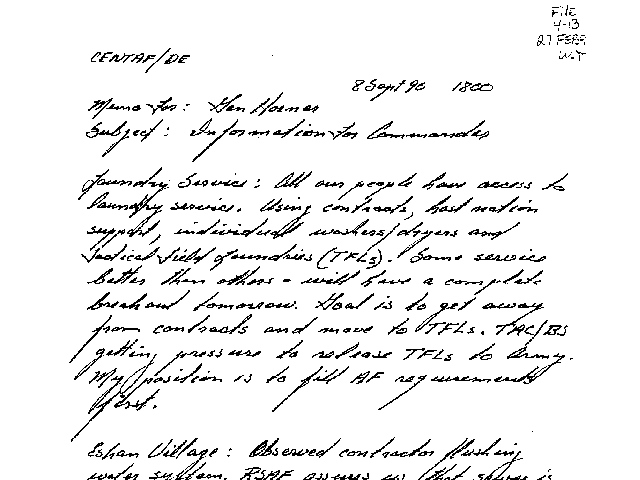 File
4-13
27 FEB9
CENTAF/DE
8 Sept 90 1800
Memo for: Gen Horner
Subject: Information for Commander
Laundry Service: All our people have access to
laundry service. Using contracts, host nation
support, individual washers/dryers and
tactical field laundries (TFLs). Some service
better than others - will have a complete
breakout tomorrow. Goal is to get away
from contracts and move to TFLs. TAC/
getting pressure to release TFLs to Army.
My position is to fill AF requirements
first.
Eskan Village: Observed contractor flushing
water system. RSAF assures us that sewer is